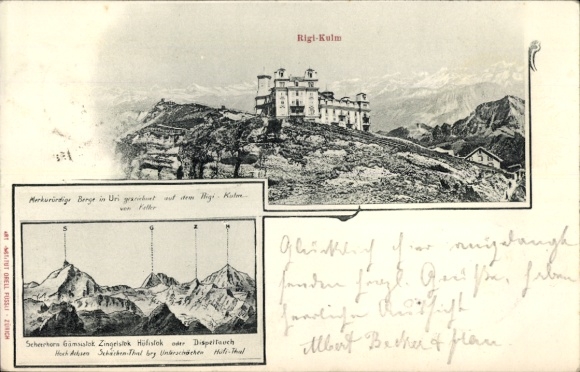 Rigi-Kulm
Merkwürdige Berge in Uri gezeichnet auf dem Rigi-Kulm
von Feller
S G Z H
Scheerhorn Gämsistok Zingelstok Hüfistok oder Dispeltauch
Hoch Achsen Schächen-Thal bey Unterschächen Hüfi-Thal
ART. INSTITUT ORELL FÜSSLI - ZÜRICH
Glücklich hier angelangt
senden herzl. Grüsse, haben
herrliche Aussicht
Albert Becker & Frau